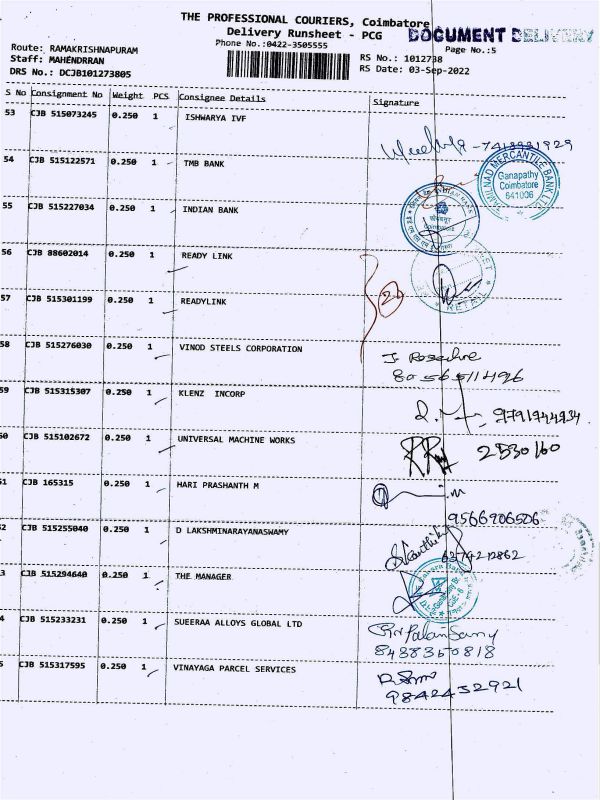 THE PROFESSIONAL COURIERS, Coimbatore
Delivery Runsheet - PCG
DOCUMENT DELIVERY
Phone No.:0422-3505555
Page No.:5
Route: RAMAKRISHNAPURAM
Staff: MAHENDRRAN
DRS No.: DCJB101273805
RS No.: 1012738
RS Date: 03-Sep-2022
S No Consignment No Weight PCS Consignee Details Signature
53 CJB 515073245 0.250 1 ISHWARYA IVF
54 CJB 515122571 0.250 1 TMB BANK
TAMILNAD MERCANTILE BANK LTD
Ganapathy
Coimbatore
641006
55 CJB 515227034 0.250 1 INDIAN BANK
56 CJB 88602014 0.250 1 READY LINK
57 CJB 515301199 0.250 1 READYLINK
2
58 CJB 515276030 0.250 1 VINOD STEELS CORPORATION
59 CJB 515315307 0.250 1 KLENZ INCORP
9791944934
60 CJB 515102672 0.250 1 UNIVERSAL MACHINE WORKS
2530160
61 CJB 165315 0.250 1 HARI PRASHANTH M
9566906506
62 CJB 515255040 0.250 1 D LAKSHMINARAYANASWAMY
63 CJB 515294640 0.250 1 THE MANAGER
64 CJB 515233231 0.250 1 SUEERAA ALLOYS GLOBAL LTD
8488350818
65 CJB 515317595 0.250 1 VINAYAGA PARCEL SERVICES
9842432921